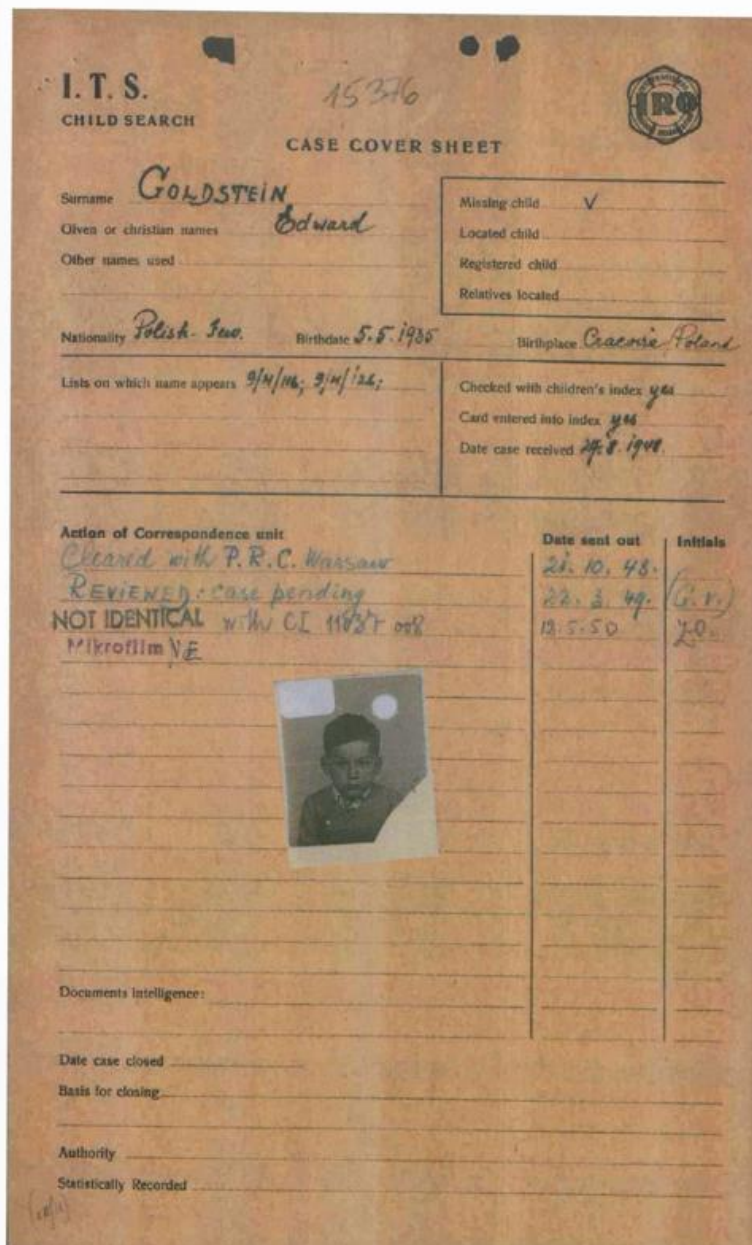 I. T. S.
15376
CHILD SEARCH
IRO
CASE COVER SHEET
Surname GOLDSTEIN
Given or christian names Edward
Other names used
Missing child V
Located child
Registered child
Relatives located
Nationality Polish-Jew. Birthdate 5.5.1935 Birthplace Cracovie/Poland
Lists on which name appears
Checked with children's index yes
Card entered into index yes
Date case received 1948.
Action of Correspondence unit Date sent out Initials
Cleared with P.R.C. Warsaw 10. 48.
REVIEWED: case pending 22. 3. 49. (G.V.)
NOT IDENTICAL with CI 008 12.5.50
Mikrofilm VE
Documents intelligence:
Date case closed
Basis for closing
Authority
Statistically Recorded